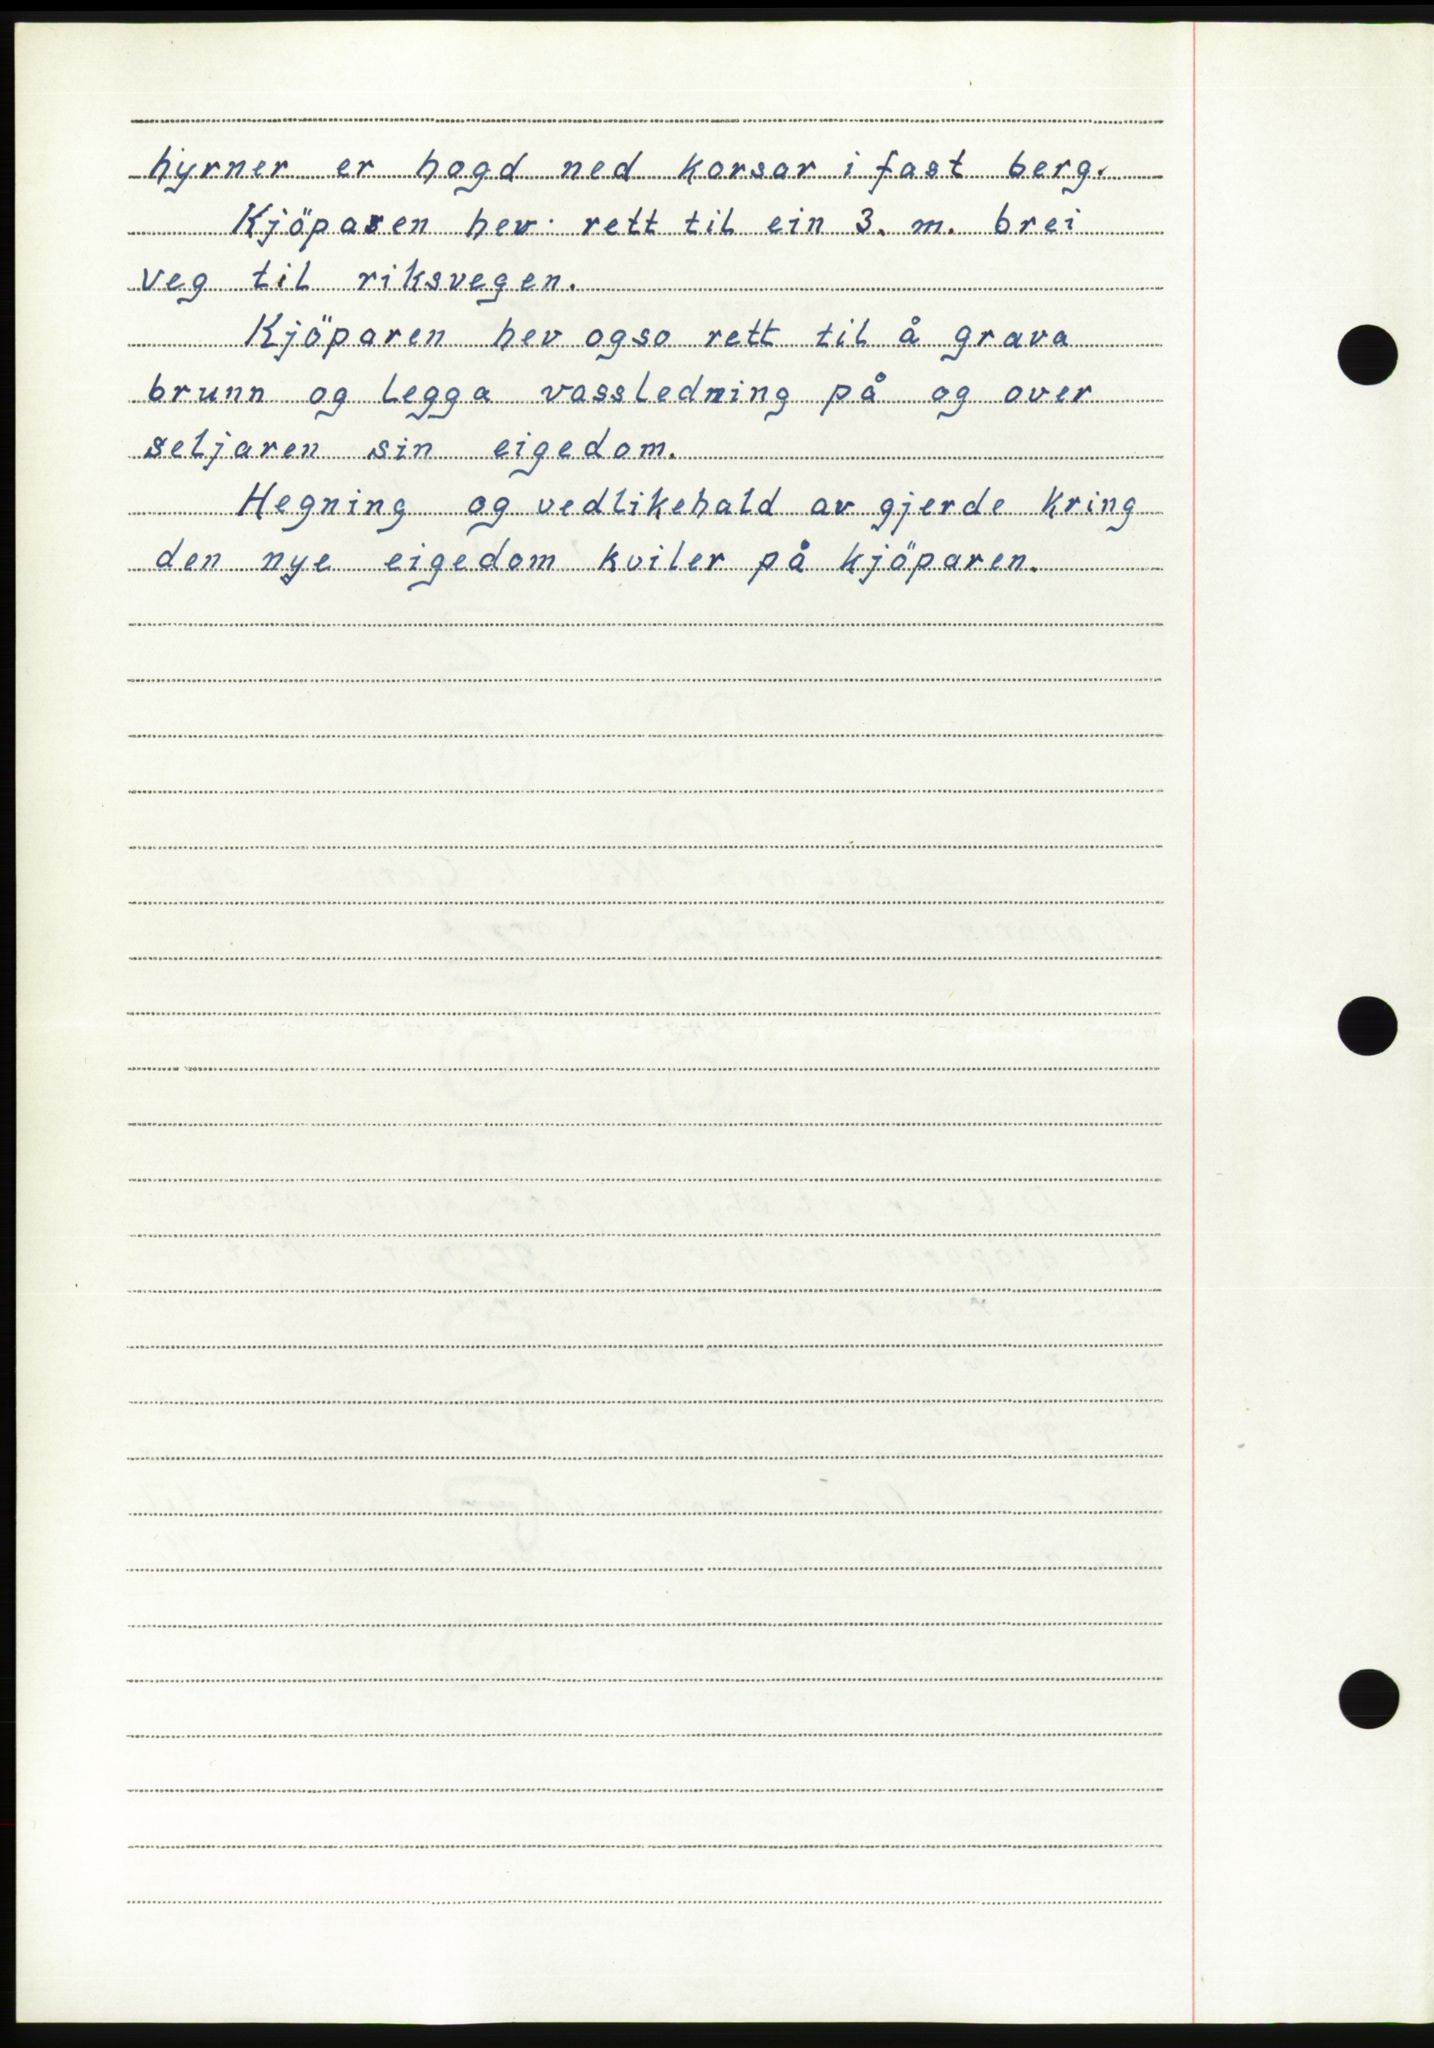 hjyrner er hogd ned korsar i fast berg.
Kjöparen hev rett til ein 3. m. brei
veg til riksvegen.
Kjöparen hev ogso rett til å grava
brunn og legga vassledning på og over
seljaren sin eigedom.
Hegning og vedlikehald av gjerde kring
den nye eigedom kviler på kjöparen.